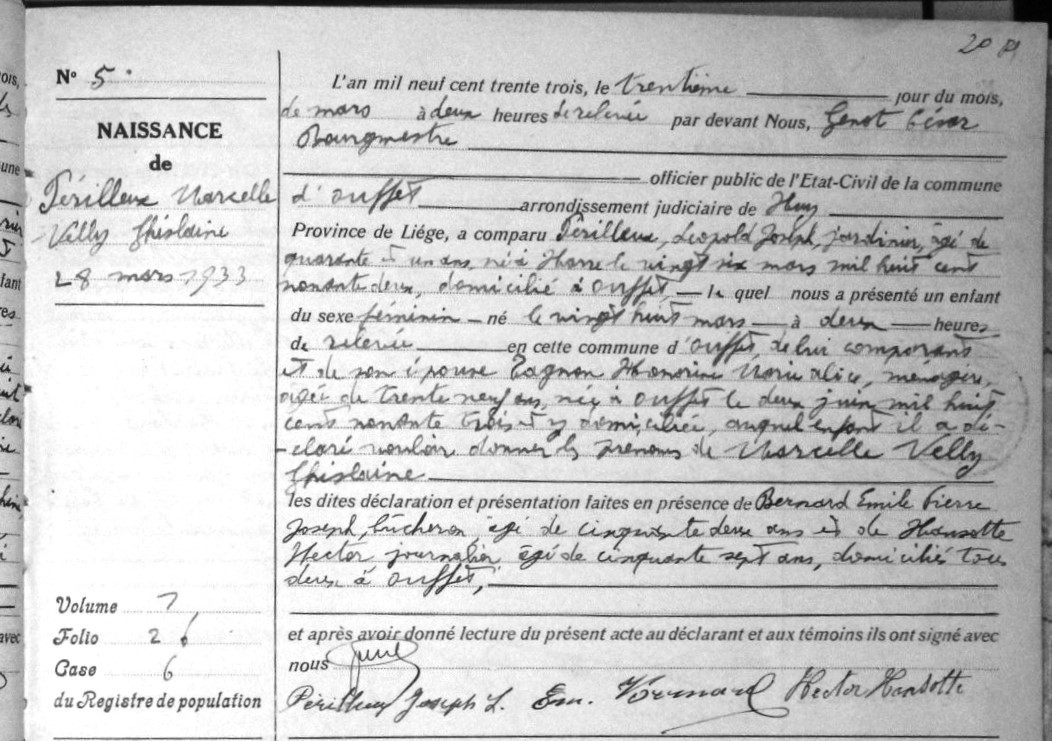 20
N° 5.
NAISSANCE
de
Périlleux Marcelle
Velly Ghislaine
28 mars 1933
L'an mil neuf cent trente trois, le trentième jour du mois,
de mars à deux heures de relevée par devant Nous, Genot César
Bourgmestre
officier public de l'Etat-Civil de la commune
d'Ouffet arrondissement judiciaire de Huy
Province de Liége, a comparu Périlleux, Léopold Joseph, jardinier, âgé de
quarante et un ans, né à Harre le vingt six mars mil huit cent
nonante deux, domicilié à Ouffet, le quel nous a présenté un enfant
du sexe féminin né le vingt huit mars à deux heures
de relevée en cette commune d'Ouffet, de lui comparant
et de son épouse Tagnon Honorine Marie Alice, ménagère,
âgée de trente neuf ans, née à Ouffet le deux juin mil huit
cent nonante trois et y domiciliée, auquel enfant il a dé-
-claré vouloir donner les prénoms de Marcelle Velly
Ghislaine
les dites déclaration et présentation faites en présence de Bernard Emile Pierre
Joseph, bucheron, âgé de cinquante deux ans et de Hansotte
Hector, journalier, âgé de cinquante sept ans, domiciliés tous
deux à Ouffet,
Volume 7
Folio 26
Case 6
du Registre de population
et après avoir donné lecture du présent acte au déclarant et aux témoins ils ont signé avec
nous
Périlleux Joseph L. Em. Bernard Hector Hansotte